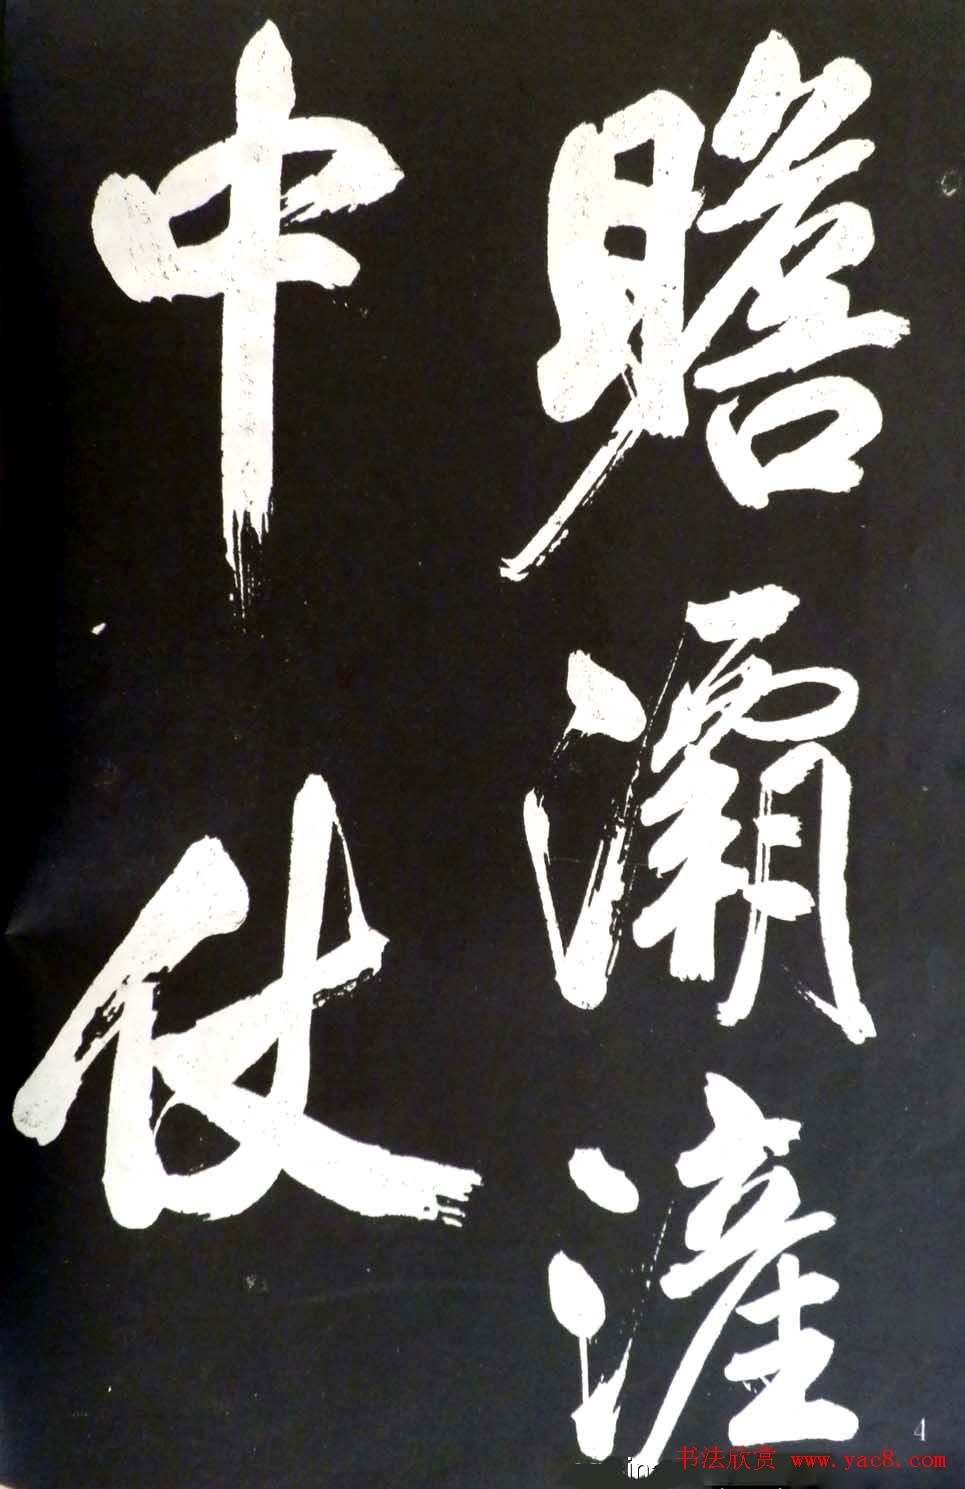 瞻灞浐
中仗
4
书法欣赏 www.yac8.com